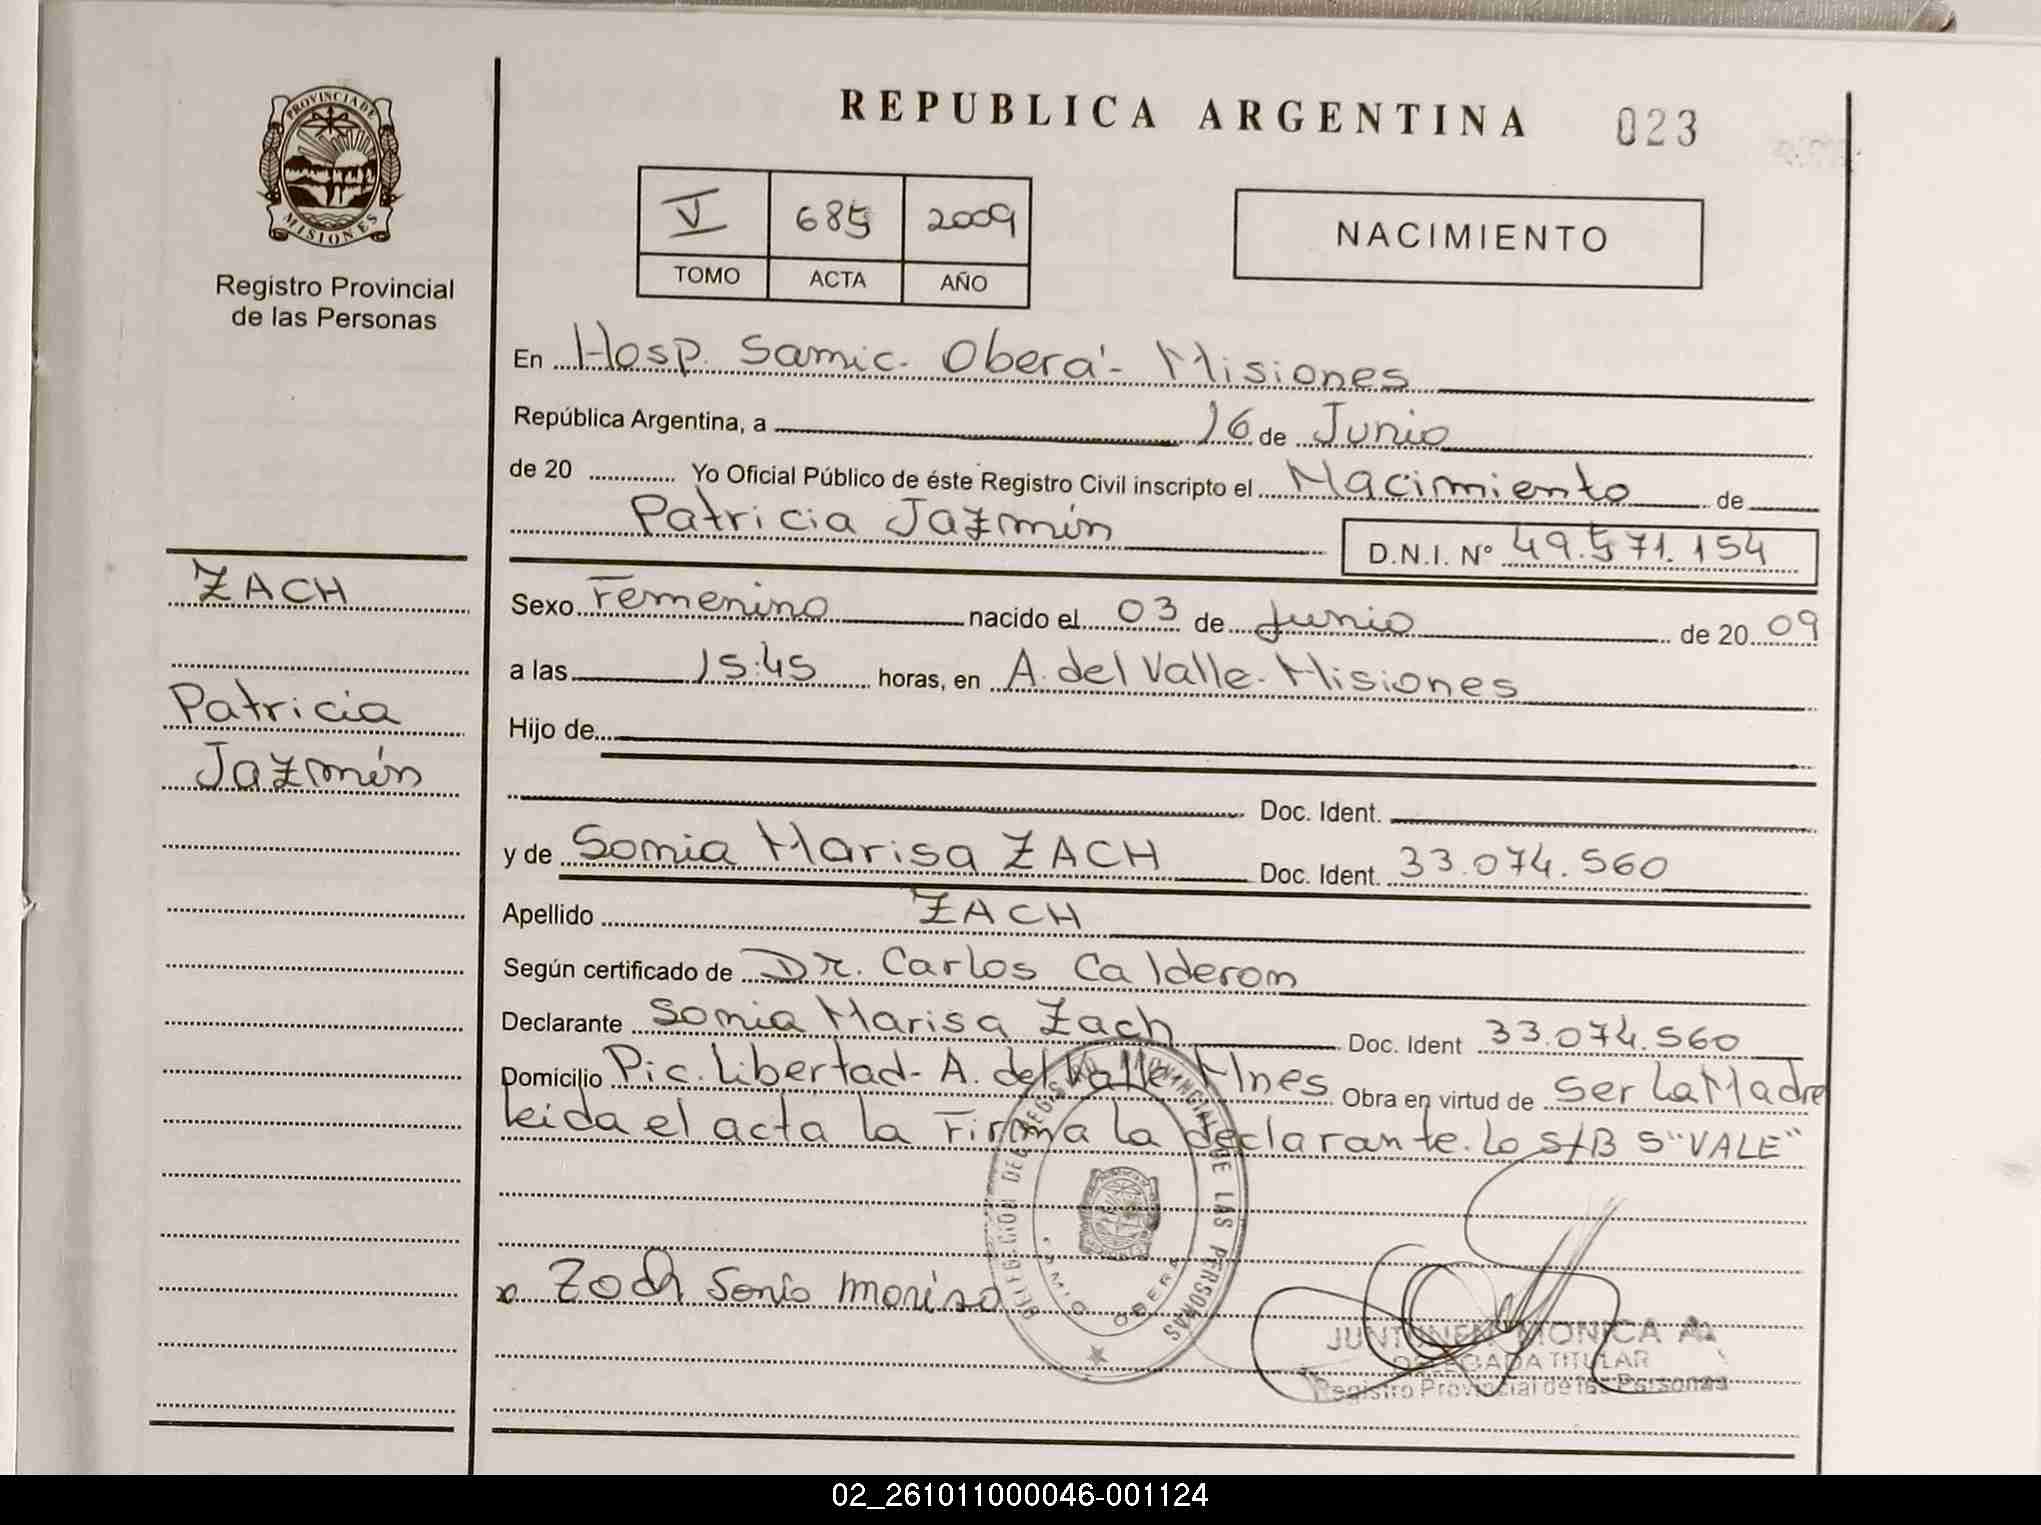 PROVINCIA DE
MISIONES
Registro Provincial
de las Personas
REPUBLICA ARGENTINA 023
V 685 2009
TOMO ACTA AÑO
NACIMIENTO
En Hosp. Samic. Oberá - Misiones
República Argentina, a 16 de Junio
de 20 Yo Oficial Público de éste Registro Civil inscripto el Nacimiento de
Patricia Jazmín D.N.I. Nº 49.571.154
Sexo Femenino nacido el 03 de Junio de 20 09
a las 15:45 horas, en A. del Valle. Misiones
Hijo de
Doc. Ident.
y de Sonia Marisa ZACH Doc. Ident. 33.074.560
Apellido ZACH
Según certificado de Dr. Carlos Calderon
Declarante Sonia Marisa Zach Doc. Ident 33.074.560
Domicilio Pic. Libertad - A. del Valle Mnes Obra en virtud de ser La Madre
leida el acta la Firma la declarante. Lo S/B 5 "VALE"
x Zach Sonia Marisa
ZACH
Patricia
Jazmín
DELEGACION DEL REGISTRO PROVINCIAL DE LAS PERSONAS
OBERA
JUNTUNEN MONICA A.
DELEGADA TITULAR
Registro Provincial de las Personas
02_261011000046-001124